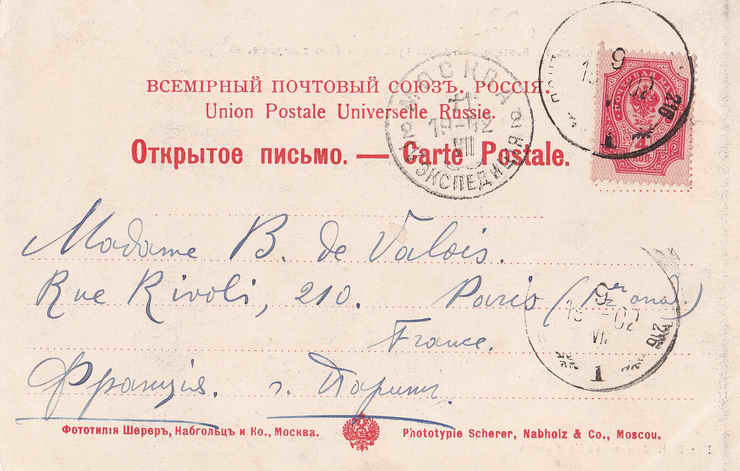 ВСЕМІРНЫЙ ПОЧТОВЫЙ СОЮЗЪ. РОССІЯ.
Union Postale Universelle Russie.
Открытое письмо. — Carte Postale.
МОСКВА
19-02
VII
ЭКСПЕДИЦІЯ
9
216
1
Madame B. de Valois.
Rue Rivoli, 210. Paris (1er
France.
Франція. г. Парижъ
9
02
VII
216
1
Фототипія Шереръ, Набгольцъ и Ко., Москва.
Phototypie Scherer, Nabholz & Co., Moscou.